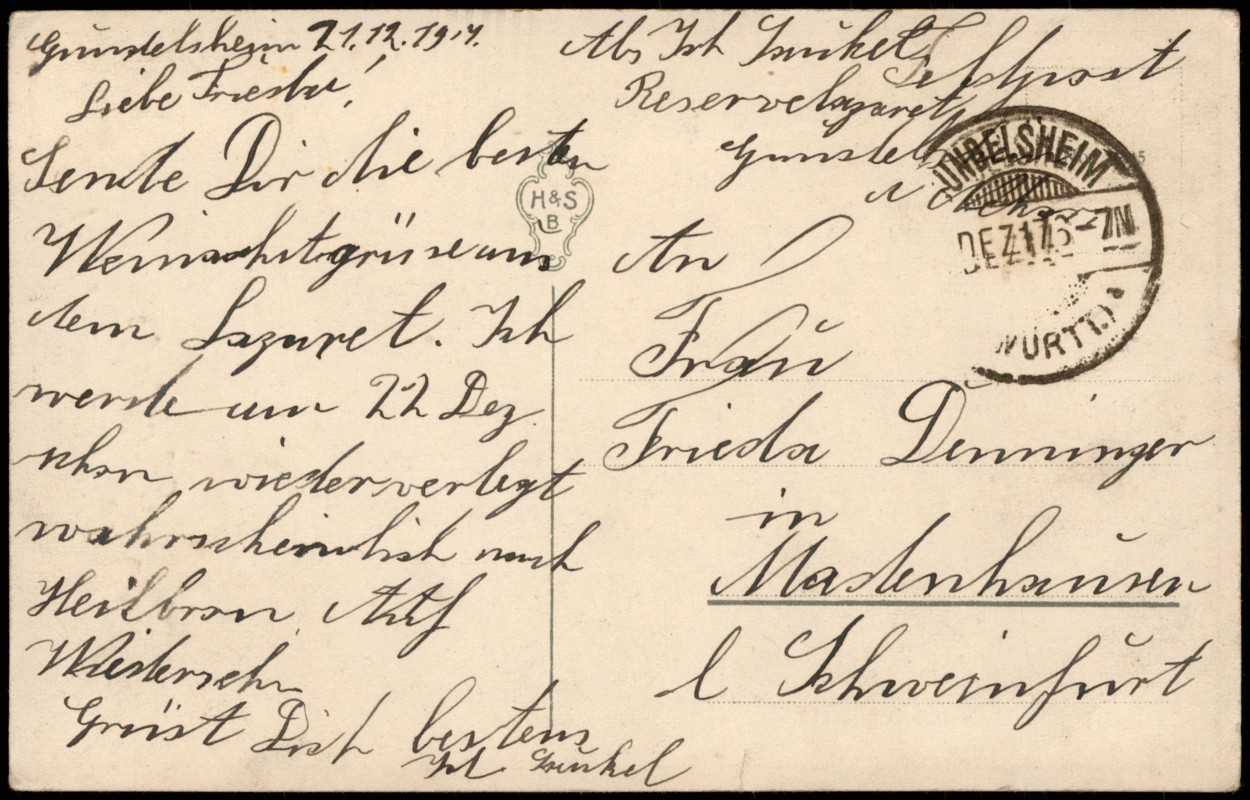 Gundelsheim 21.12.1917.
Liebe Frieda!
Sende Dir die besten
Weinachtsgrüse aus
dem Lazaret. Ich
werde am 22 Dez
schon wieder verlegt
wahrscheinlich nach
Heilbron Auf
Wiedersehn
Grüst Dich bestens
Abs
Feldpost
Reservelazaret
Gundel
H&S
B
UNDELSHEIM
DEZ.17.
WÜRTT.
An
Frau
Frieda Denninger
in
Madenhausen
b Schweinfurt